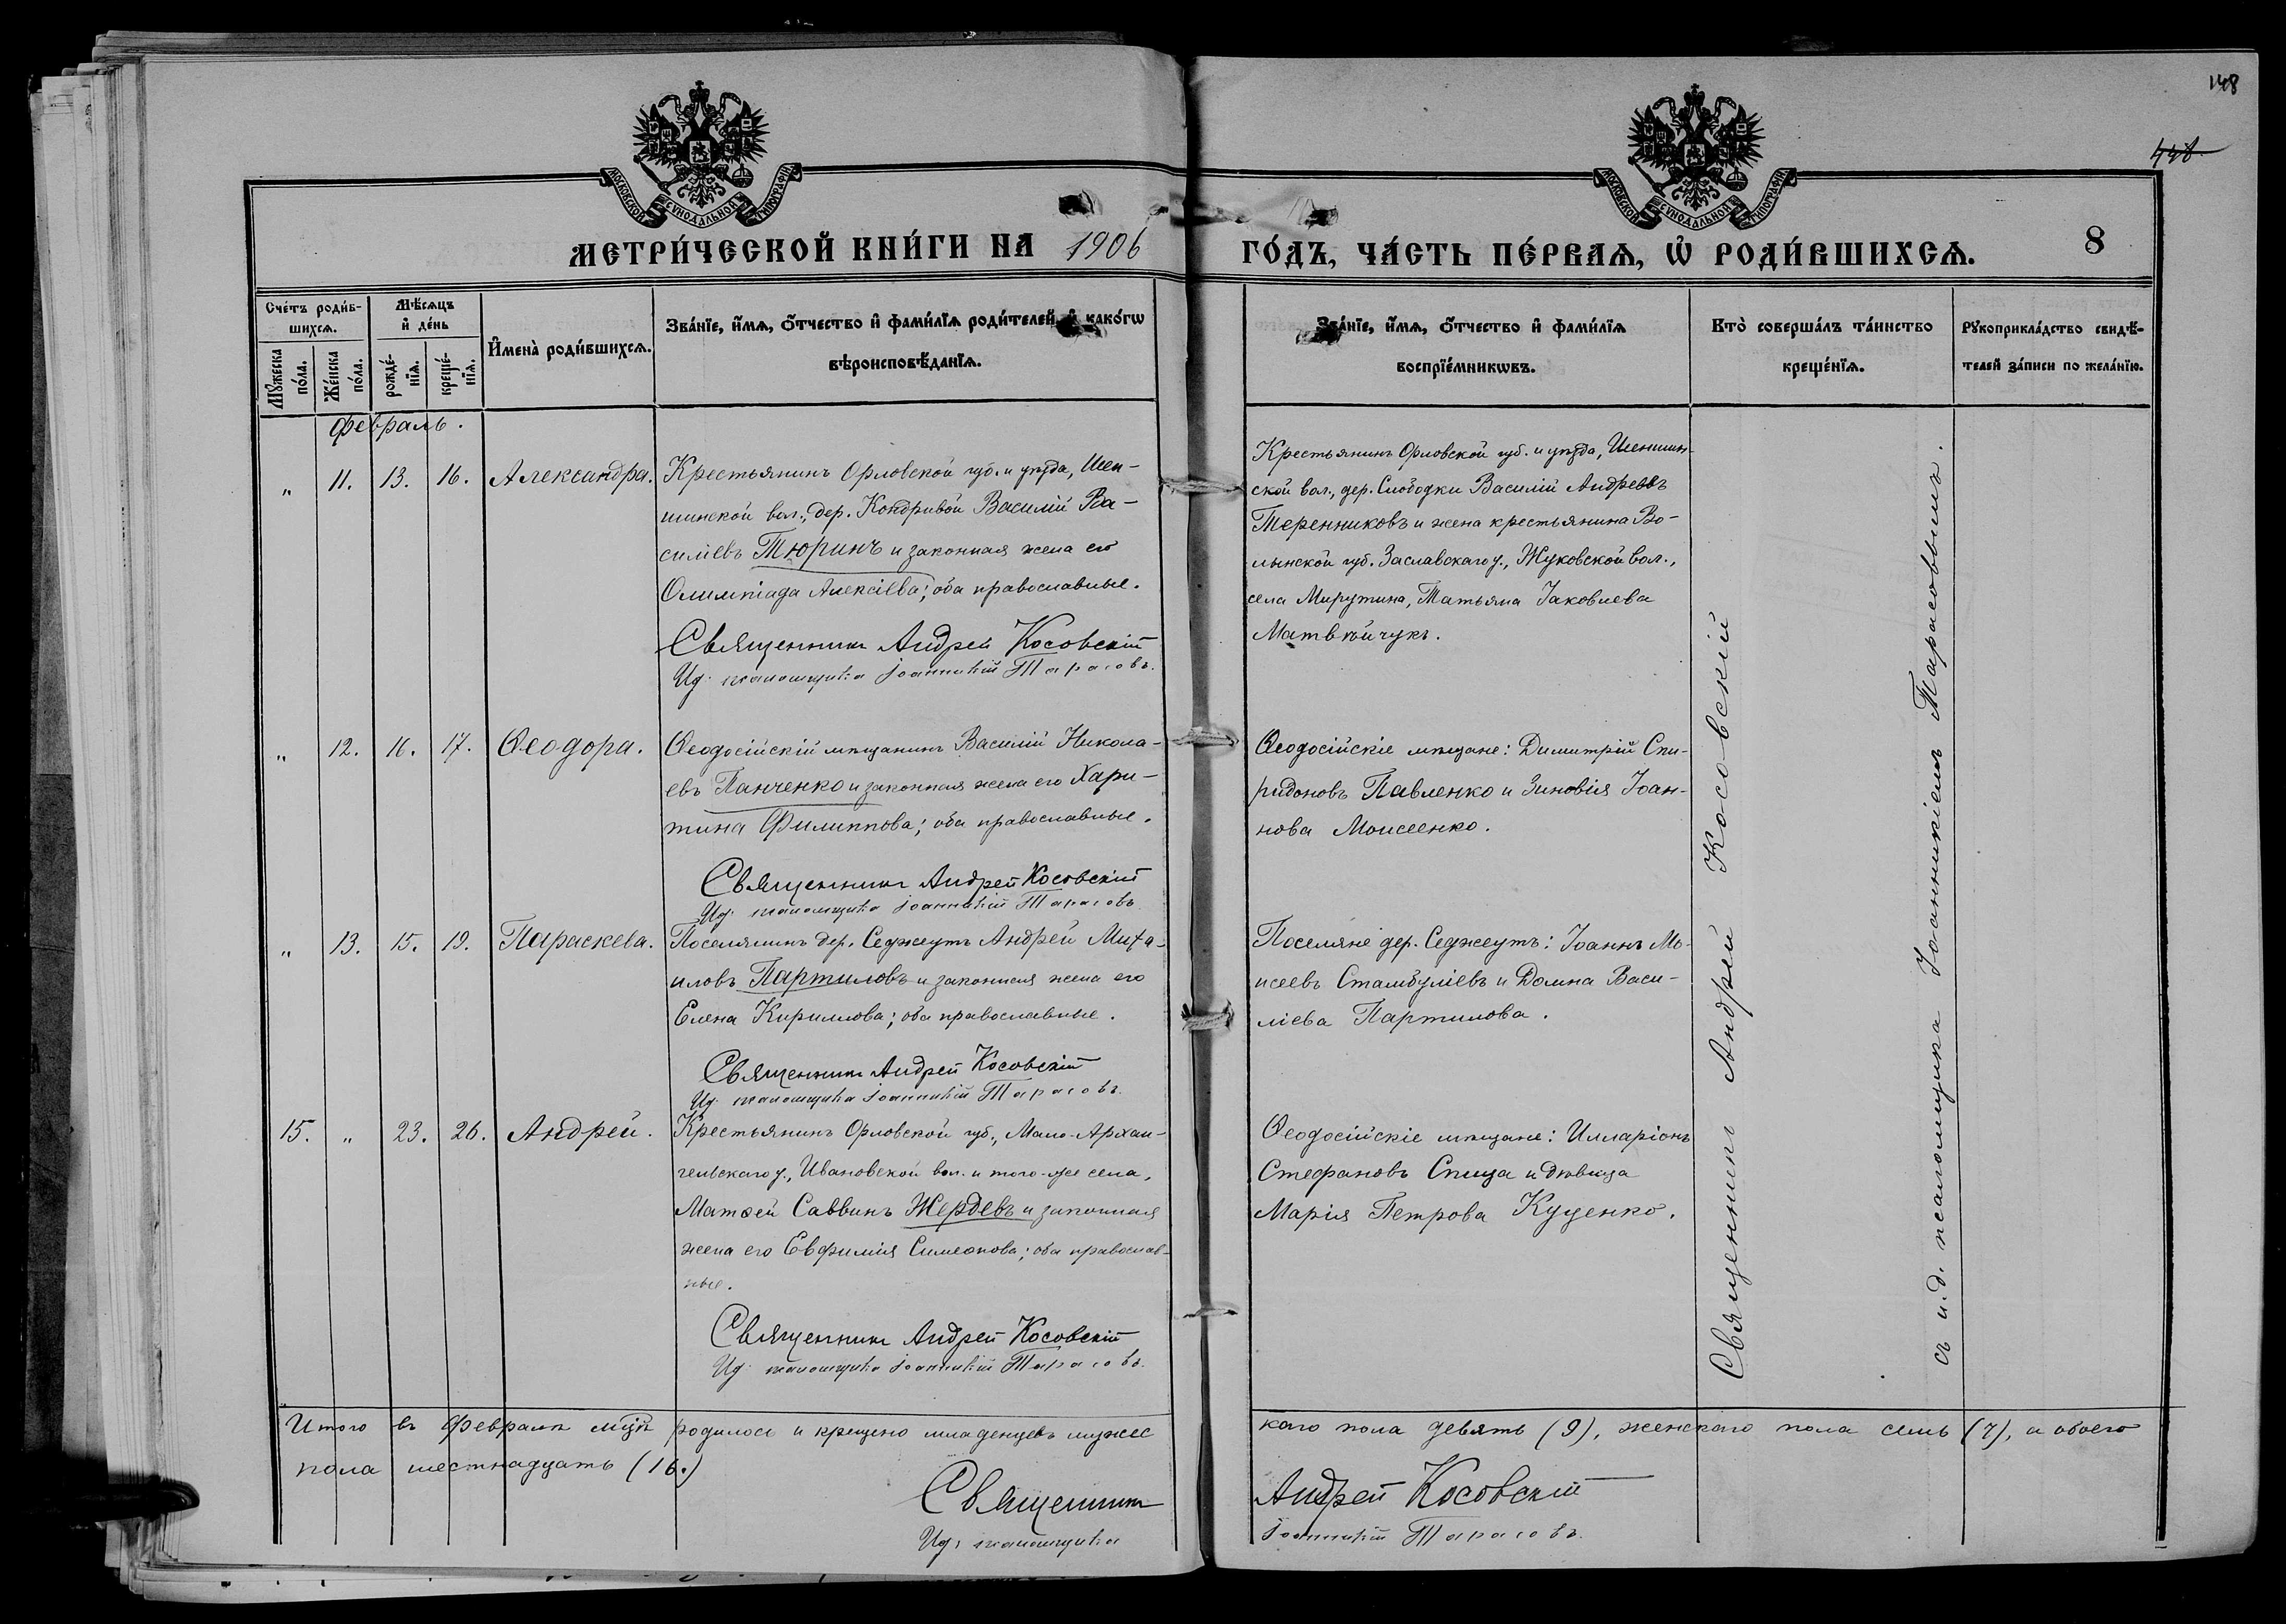 148
448.
МОСКОВСКОЙ СѴНОДАЛЬНОЙ ТИПОГРАФІИ
МОСКОВСКОЙ СѴНОДАЛЬНОЙ ТИПОГРАФІИ
МЕТРИ́ЧЕСКОЙ КНИ́ГИ НА 1906 ГО́ДЪ, ЧА́СТЬ ПЕ́РВАѦ, Ѡ҆ РОДИ́ВШИХСѦ. 8
Сче́тъ роди́в-
шихсѧ.
Мꙋ́жеска по́ла.
Же́нска по́ла.
Мѣ́сѧцъ
и҆ де́нь
рожде́-
нїѧ.
креще́-
нїѧ.
И҆мена̀ роди́вшихсѧ.
Зва́нїе, и҆́мѧ, ѻ҆́тчество и҆ фами́лїѧ роди́телей, и҆ како́гѡ
вѣроисповѣ́данїѧ.
Зва́нїе, и҆́мѧ, ѻ҆́тчество и҆ фами́лїѧ
воспрїе́мникѡвъ.
Кто̀ соверша́лъ та́инство
креще́нїѧ.
Рꙋкоприкла́дство свидѣ́-
телей за́писи по жела́нїю.
Февраль.
" 11. 13. 16. Александра. Крестьянинъ Орловской губ. и уѣзда, Шен-
шинской вол., дер. Кондривой Василій Ва-
силіевъ Тюринъ и законная жена его
Олимпіада Алексіева; оба православные.
Священникъ Андрей Косовскій
И.д. псаломщика Іоанникій Тарасовъ.
Крестьянинъ Орловской губ. и уѣзда, Шеншин-
ской вол., дер. Слободки Василій Андреевъ
Теренниковъ и жена крестьянина Во-
лынской губ. Заславскаго у., Жуковской вол.,
села Мирутина, Татьяна Іаковлева
Матвѣйчукъ.
" 12. 16. 17. Ѳеодора. Ѳеодосійскій мѣщанинъ Василій Никола-
евъ Панченко и законная жена его Хари-
тина Филиппова; оба православные.
Священникъ Андрей Косовскій
И.д. псаломщика Іоанникій Тарасовъ
Ѳеодосійскіе мѣщане: Димитрій Спи-
ридоновъ Павленко и Зиновія Іоан-
нова Моисеенко.
" 13. 15. 19. Параскева. Поселянинъ дер. Седжеутъ Андрей Миха-
иловъ Партиловъ и законная жена его
Елена Кириллова; оба православные.
Священникъ Андрей Косовскій
И.д. псаломщика Іоанникій Тарасовъ.
Поселяне дер. Седжеутъ: Іоаннъ Мо-
исеевъ Стамбуліевъ и Домна Васи-
ліева Партилова.
15. " 23. 26. Андрей. Крестьянинъ Орловской губ., Мало-Архан-
гельскаго у., Ивановской вол. и того-же села,
Матѳей Саввинъ Жердевъ и законная
жена его Евфимія Симеонова; оба православ-
ные.
Священникъ Андрей Косовскій
И.д. псаломщика Іоанникій Тарасовъ.
Ѳеодосійскіе мѣщане: Илларіонъ
Стефановъ Спица и дѣвица
Марія Петрова Куценко.
Священникъ Андрей Косовскій
съ и.д. псаломщика Іоанникіемъ Тарасовымъ.
Итого въ Февралѣ мцѣ родилось и крещено младенцевъ мужес
каго пола девять (9), женскаго пола семь (7), а обоего
пола шестнадцать (16.)
Священникъ Андрей Косовскій
И.д. псаломщика Іоанникій Тарасовъ.